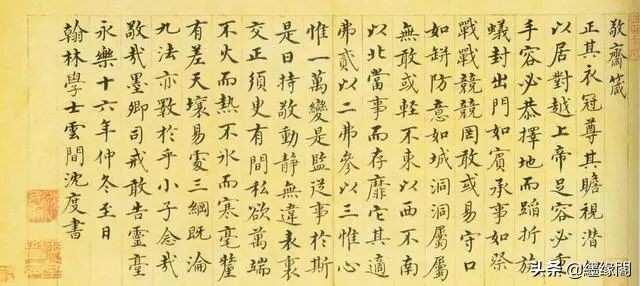 敬齋箴
正其衣冠尊其瞻視潛心
以居對越上帝足容必重
手容必恭擇地而蹈折旋
蟻封出門如賓承事如祭
戰戰兢兢罔敢或易守口
如缾防意如城洞洞屬屬
無敢或輕不東以西不南
以北當事而存靡它其適
弗貳以二弗參以三惟心
惟一萬變是監從事於斯
是曰持敬動靜無違表裏
交正須臾有間私欲萬端
不火而熱不氷而寒毫釐
有差天壤易處三綱既淪
九法亦斁於乎小子念哉
敬哉墨卿司戒敢告靈臺
永樂十六年仲冬至日
翰林學士雲間沈度書
头条 @經缘閣